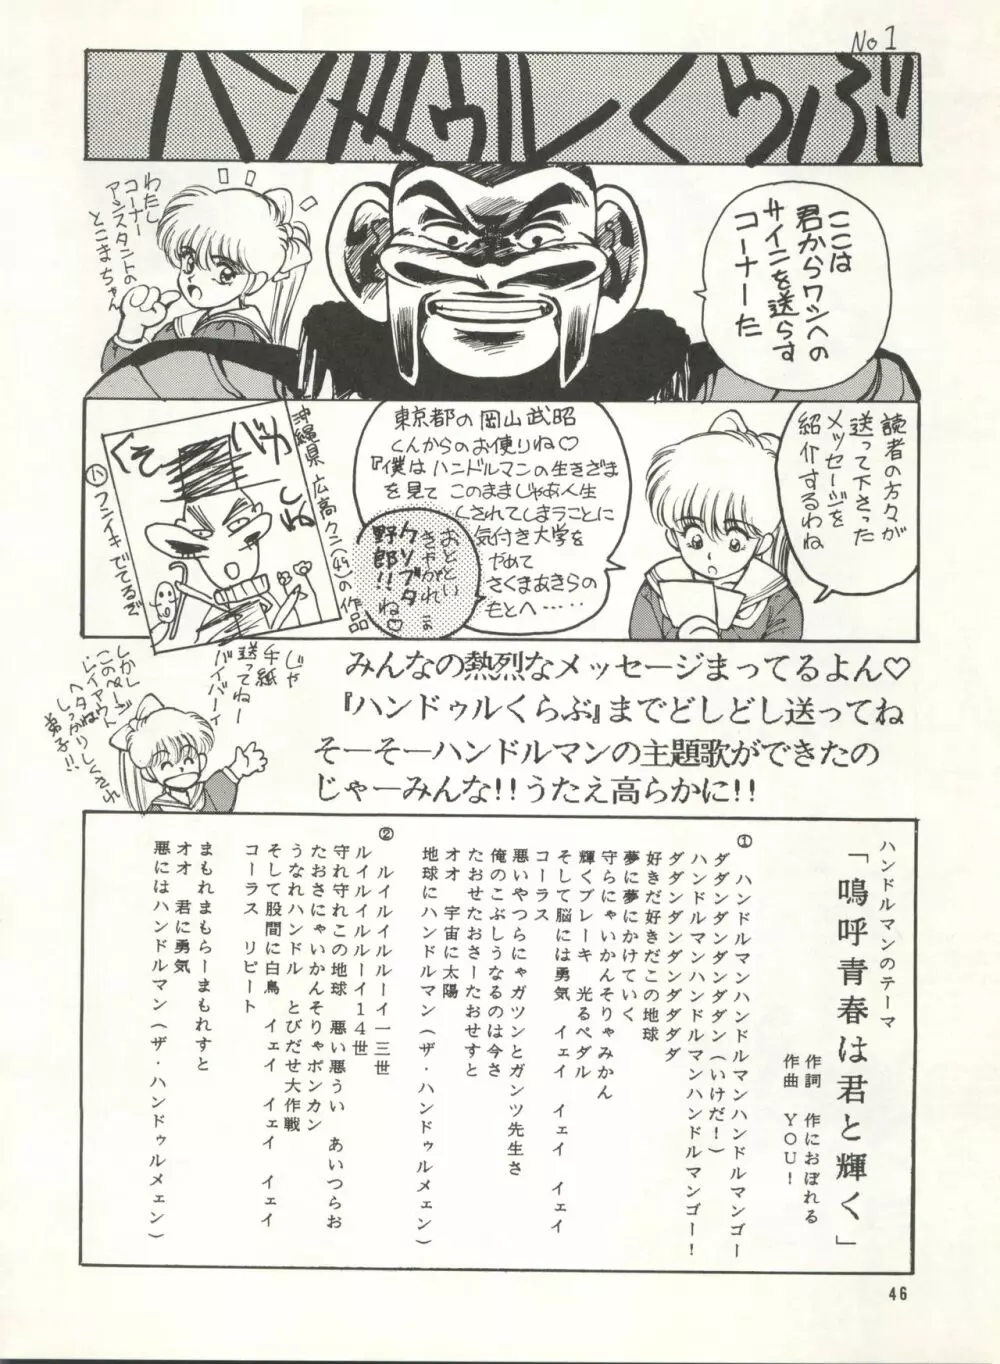 No1
ハンドゥルくらぶ
ここは
君からワシへの
サインを送らす
コーナーた
わたし
コーナー
アシスタントの
とこまちゃん
読者の方々が
送って下さった
メッセージを
紹介するわね
東京都の岡山武昭
くんからのお便りね♡
『僕はハンドルマンの生きざま
を見て このままじゃあ人生
くされてしまうことに
気付き大学を
やめて
さくまあきらの
もとへ‥‥‥
おととい
きやがれ
クソブタ
野郎!!ね♡
沖縄県 広高クニ(49)の作品
バカ
くそ
しね
フンイキでてるぞ
じゃ
手紙
送ってねー
バイバーイ
しかし
このページ
レイアウト
ヘタねー
しっかりしてくされ
弟子!!
みんなの熱烈なメッセージまってるよん♡
『ハンドゥルくらぶ』までどしどし送ってね
そーそーハンドルマンの主題歌ができたの
じゃーみんな!!うたえ高らかに!!
ハンドルマンのテーマ
「嗚呼青春は君と輝く」
作詞 作におぼれる
作曲 YOU!
①
ハンドルマンハンドルマンハンドルマンゴー
ダダンダンダンダダン(いけだ!)
ハンドルマンハンドルマンハンドルマンゴー!
ダダンダンダンダンダダダダ
好きだ好きだこの地球
夢に夢にかけていく
守らにゃいかんそりゃみかん
輝くブレーキ 光るペダル
そして脳には勇気 イェイ イェイ イェイ
コーラス
悪いやつらにゃガツンとガンツ先生さ
俺のこぶしうなるのは今さ
たおせたおさーたおせすと
オオ 宇宙に太陽
地球にハンドルマン(ザ・ハンドゥルメェン)
②
ルイルイルルーイ一三世
ルイルイルルーイ14世
守れ守れこの地球 悪い悪うい あいつらお
たおさにゃいかんそりゃポンカン
うなれハンドル とびだせ大作戦
そして股間に白鳥 イェイ イェイ イェイ
コーラス リピート
まもれまもらーまもれすと
オオ 君に勇気
悪にはハンドルマン(ザ・ハンドゥルメェン)
46